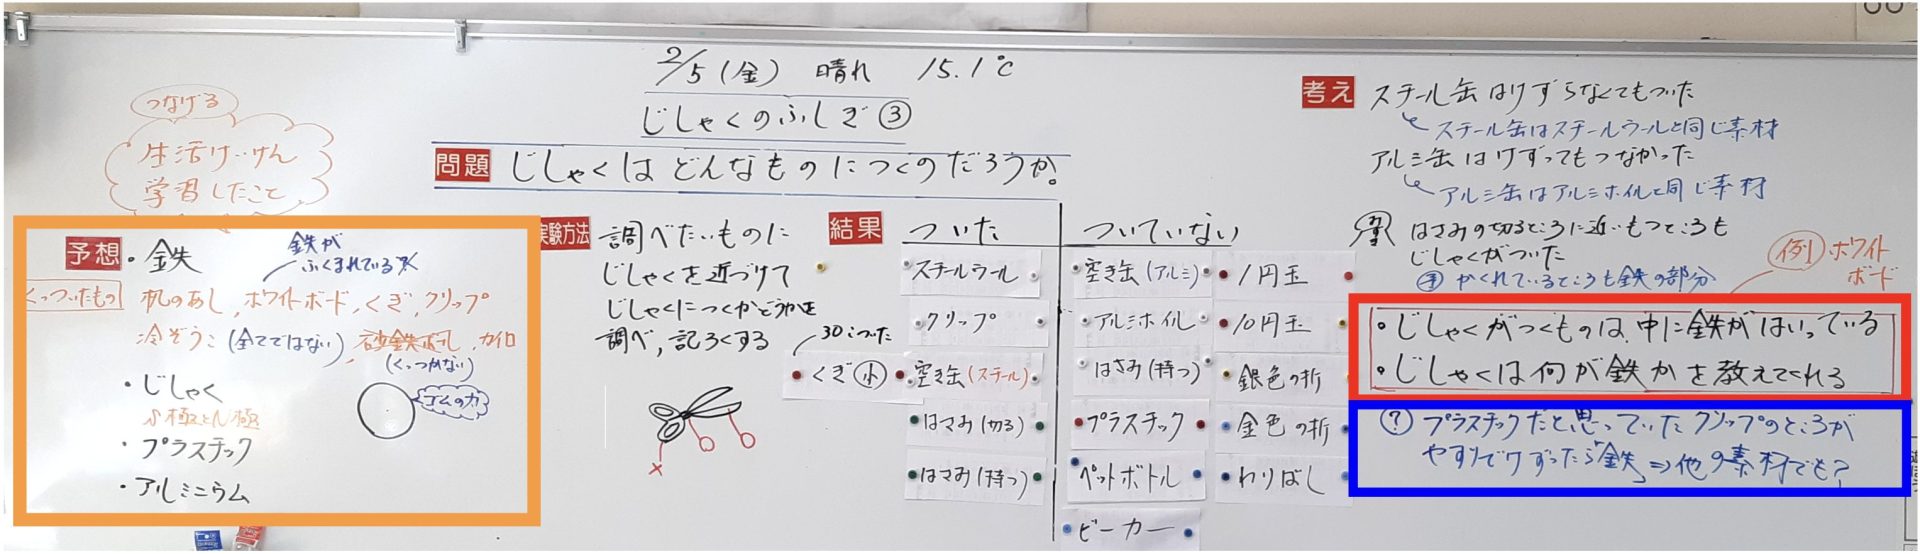 2/5(金) 晴れ 15.1℃
じしゃくのふしぎ③
問題 じしゃくはどんなものにつくのだろうか。
つなげる
生活けいけん
学習したこと
予想
・鉄
鉄が
ふくまれている
くっついたもの
机のあし,ホワイトボード,くぎ,クリップ
冷ぞうこ(全てではない),砂鉄,カイロ
(くっつかない)
・じしゃく
S極とN極
ゴムの力
・プラスチック
・アルミニウム
実験方法
調べたいものに
じしゃくを近づけて
じしゃくにつくかどうかを
調べ,記ろくする
結果
ついた
スチールウール
クリップ
30こついた
くぎ(小)
空き缶(スチール)
はさみ(切る)
はさみ(持つ)
ついていない
空き缶(アルミ)
アルミホイル
はさみ(持つ)
プラスチック
ペットボトル
ビーカー
1円玉
10円玉
銀色の折
金色の折
わりばし
考え
スチール缶はけずらなくてもついた
スチール缶はスチールウールと同じ素材
アルミ缶はけずってもつなかった
アルミ缶はアルミホイルと同じ素材
はさみの切るところに近いもつところも
じしゃくがついた
かくれているところも鉄の部分
例)ホワイト
ボード
・じしゃくがつくものは,中に鉄がはいっている
・じしゃくは何が鉄かを教えてくれる
? プラスチックだと思っていたクリップのところが
やすりでけずったら鉄⇒他の素材でも?